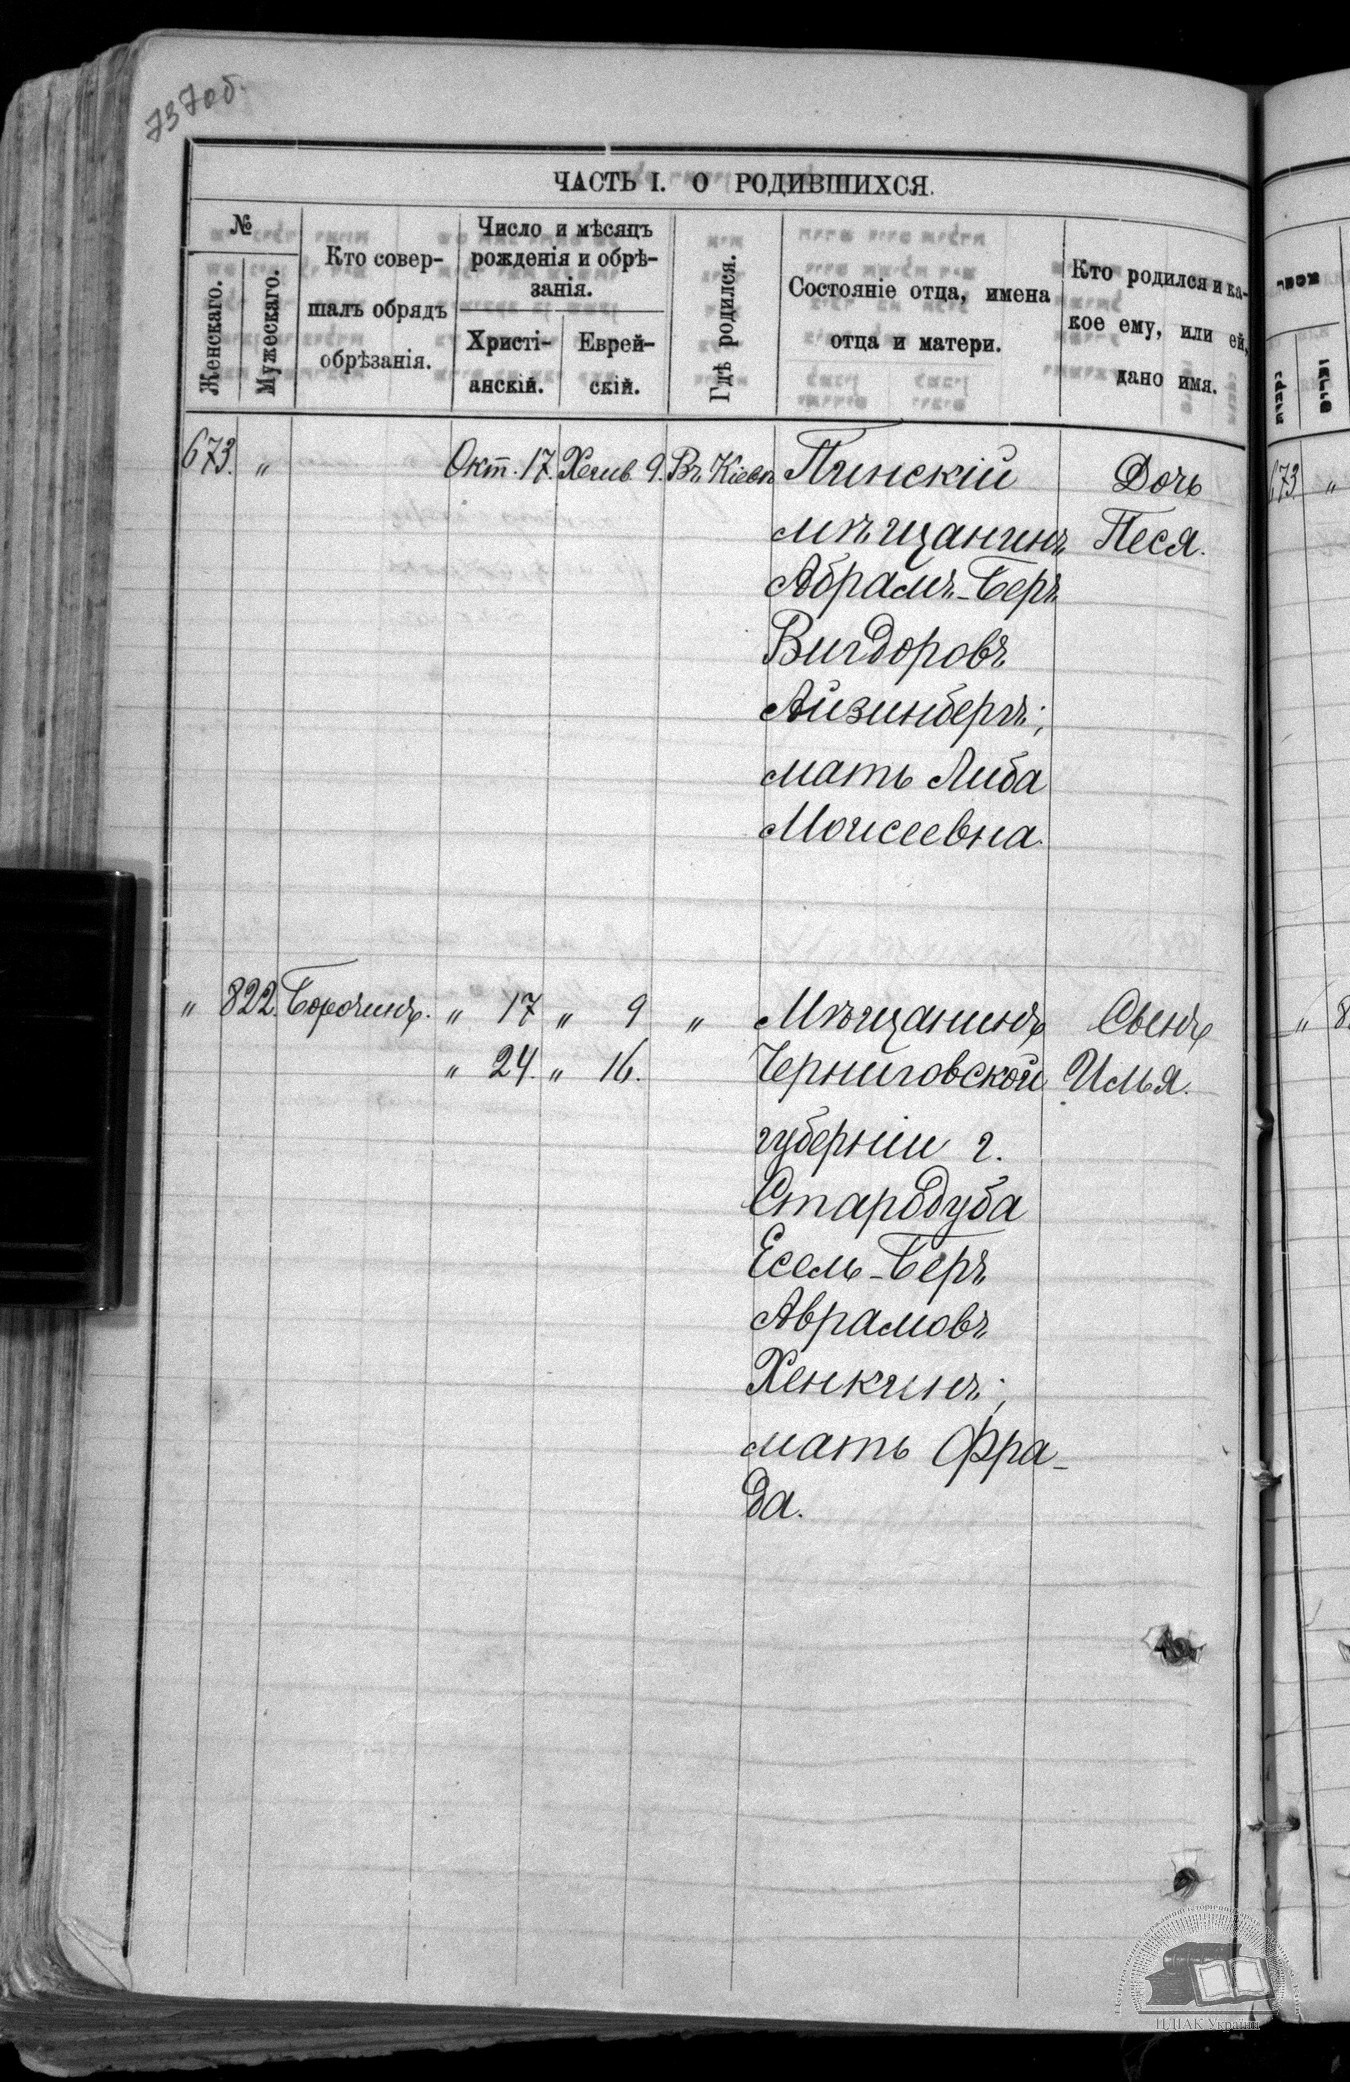 737об.
ЧАСТЬ I. О РОДИВШИХСЯ.
№
Женскаго.
Мужескаго.
Кто совер-
шалъ обрядъ
обрѣзанія.
Число и мѣсяцъ
рожденія и обрѣ-
занія.
Христі-
анскій.
Еврей-
скій.
Гдѣ родился.
Состояніе отца, имена
отца и матери.
Кто родился и ка-
кое ему, или ей,
дано имя.
673. " Окт. 17. Хешв. 9. Въ Кіевѣ Пинскій Дочь
мѣщанинъ Песя.
Абрамъ-Беръ
Вигдоровъ
Айзинбергъ;
мать Либа
Моисеевна.
" 822. " 17 " 9 " Мѣщанинъ Сынъ
" 24. " 16. Черниговской Илья.
губерніи г.
Стародуба
Есель-Беръ
Аврамовъ
Хенкинъ;
мать Фра-
да.
673 "
"
ЦДІАК України